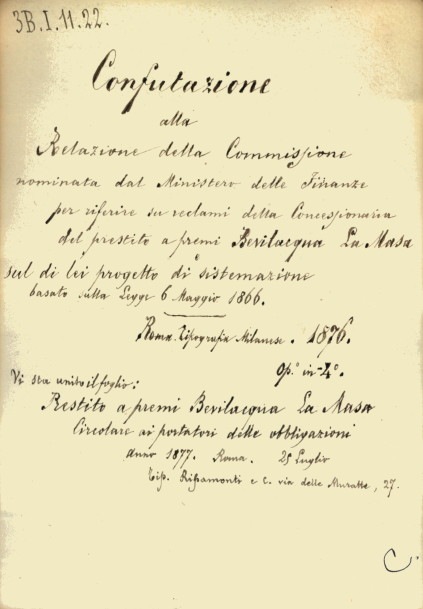 3B.I.11.22.
Confutazione
alla
Relazione della Commissione
nominata dal Ministero delle Finanze
per riferire su reclami della Concessionaria
del prestito a premi Bevilacqua La Masa
sul di lei progetto di sistemazione
basato sulla Legge 6 Maggio 1866.
Roma. Tipografia Milanese. 1876.
op.° in-4°.
Vi sta unito il foglio:
Prestito a premi Bevilacqua La Masa
Circolare ai portatori delle obbligazioni
anno 1877. Roma. 25 Luglio
Tip. Ripamonti e C. via delle Muratte, 27.
C.